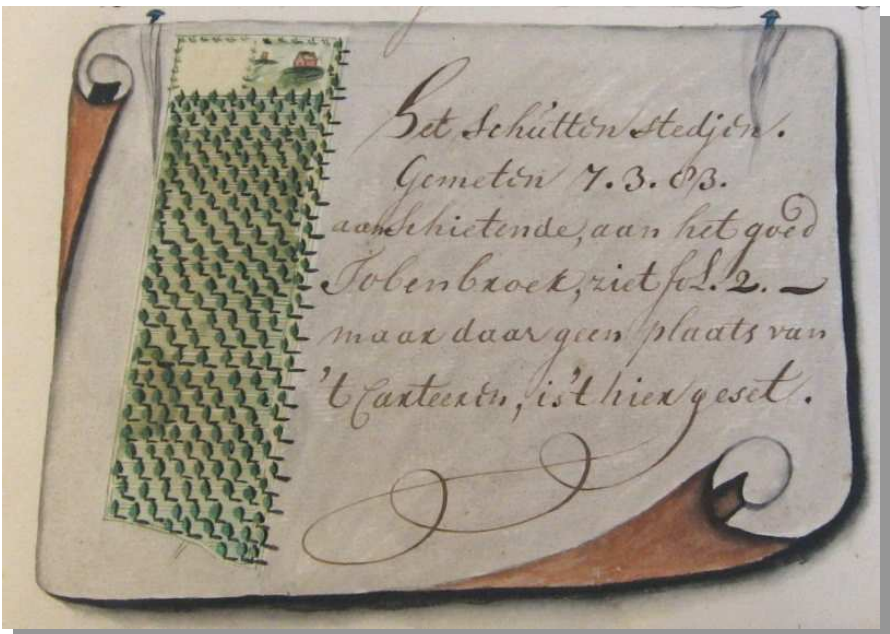 Het Schütten stedjen.
Gemeten 7.3.83.
aanschietende, aan het goed
Tobenbroek, ziet fol. 2. —
maar daar geen plaats van
't Carteeren, is 't hier geset.